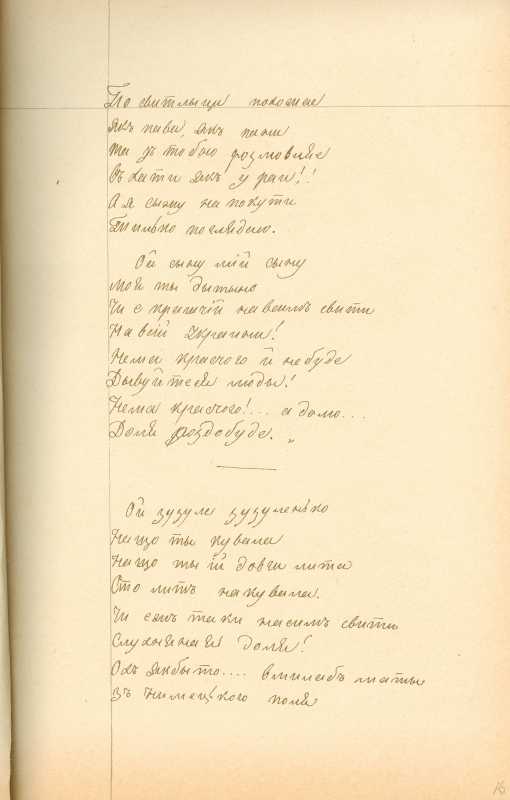 По свитлыци похожае
Якъ пава, якъ пани
Та зъ тобою розмовляе
Въ хати якъ у раи!!
А я сыжу на покути
Тилько поглядаю.
Ой сыну мій сыну
Моя ты дытыно
Чи є кращій на всимъ свити
На всій Украини!
Нема кращого й небуде
Дывуйтеся люды!
Нема кращого!... а долю...
Доля роздобуде.„
Ой зузуле зузуленько
Нащо ты кувала
Нащо ты їй довги лита
Сто литъ накувала.
Чи єжъ таки насимъ свити
Слухняная доля!
Охъ якбыто.... вмилабъ маты
Зъ нимецького поля
16